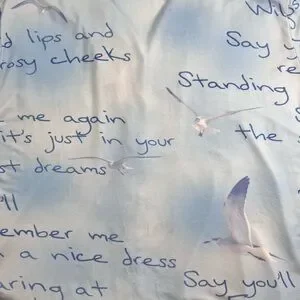 d lips and
rosy cheeks
me again
it's just in your
st dreams
'll
ember me
a nice dress
aring at
Wil
Say y
re
Standing
the s
Say you'll